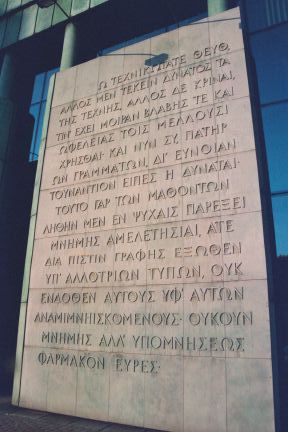 Ω ΤΕΧΝΙΚΩΤΑΤΕ ΘΕΥΘ,
ΑΛΛΟΣ ΜΕΝ ΤΕΚΕΙΝ ΔΥΝΑΤΟΣ ΤΑ
ΤΗΣ ΤΕΧΝΗΣ, ΑΛΛΟΣ ΔΕ ΚΡΙΝΑΙ,
ΤΙΝ' ΕΧΕΙ ΜΟΙΡΑΝ ΒΛΑΒΗΣ ΤΕ ΚΑΙ
ΩΦΕΛΕΙΑΣ ΤΟΙΣ ΜΕΛΛΟΥΣΙ
ΧΡΗΣΘΑΙ· ΚΑΙ ΝΥΝ ΣΥ, ΠΑΤΗΡ
ΩΝ ΓΡΑΜΜΑΤΩΝ, ΔΙ' ΕΥΝΟΙΑΝ
ΤΟΥΝΑΝΤΙΟΝ ΕΙΠΕΣ Η ΔΥΝΑΤΑΙ·
ΤΟΥΤΟ ΓΑΡ ΤΩΝ ΜΑΘΟΝΤΩΝ
ΛΗΘΗΝ ΜΕΝ ΕΝ ΨΥΧΑΙΣ ΠΑΡΕΞΕΙ
ΜΝΗΜΗΣ ΑΜΕΛΕΤΗΣΙΑΙ, ΑΤΕ
ΔΙΑ ΠΙΣΤΙΝ ΓΡΑΦΗΣ ΕΞΩΘΕΝ
ΥΠ' ΑΛΛΟΤΡΙΩΝ ΤΥΠΩΝ, ΟΥΚ
ΕΝΔΟΘΕΝ ΑΥΤΟΥΣ ΥΦ' ΑΥΤΩΝ
ΑΝΑΜΙΜΝΗΙΣΚΟΜΕΝΟΥΣ· ΟΥΚΟΥΝ
ΜΝΗΜΗΣ ΑΛΛ' ΥΠΟΜΝΗΣΕΩΣ
ΦΑΡΜΑΚΟΝ ΕΥΡΕΣ·